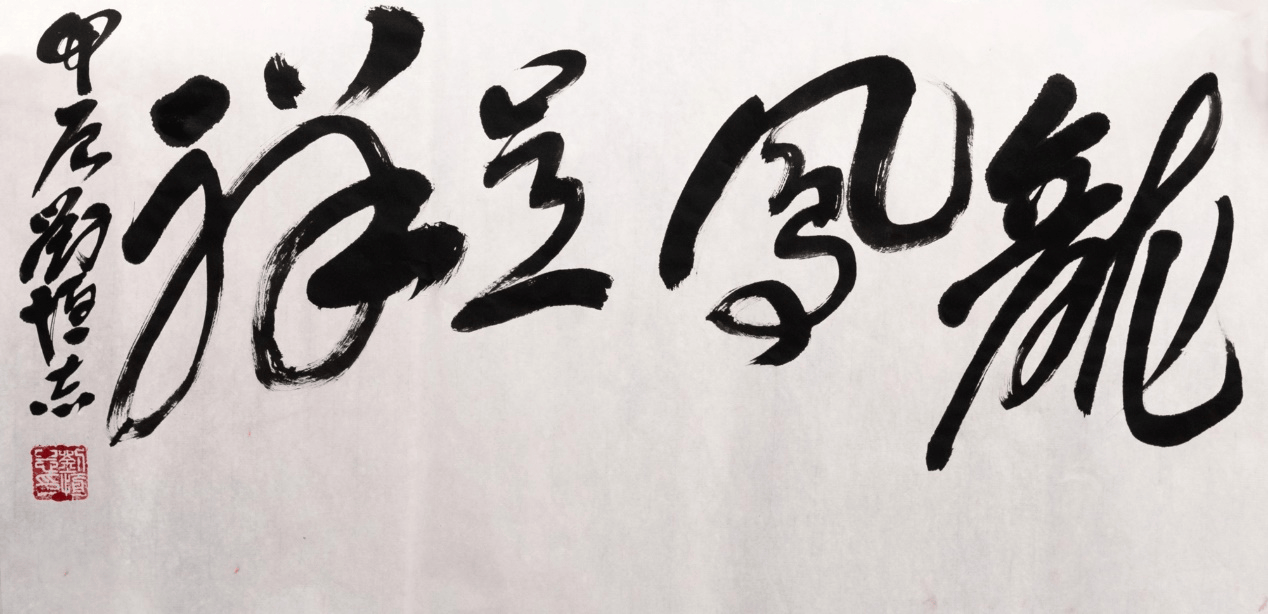 龍鳳呈祥
甲辰劉恒志